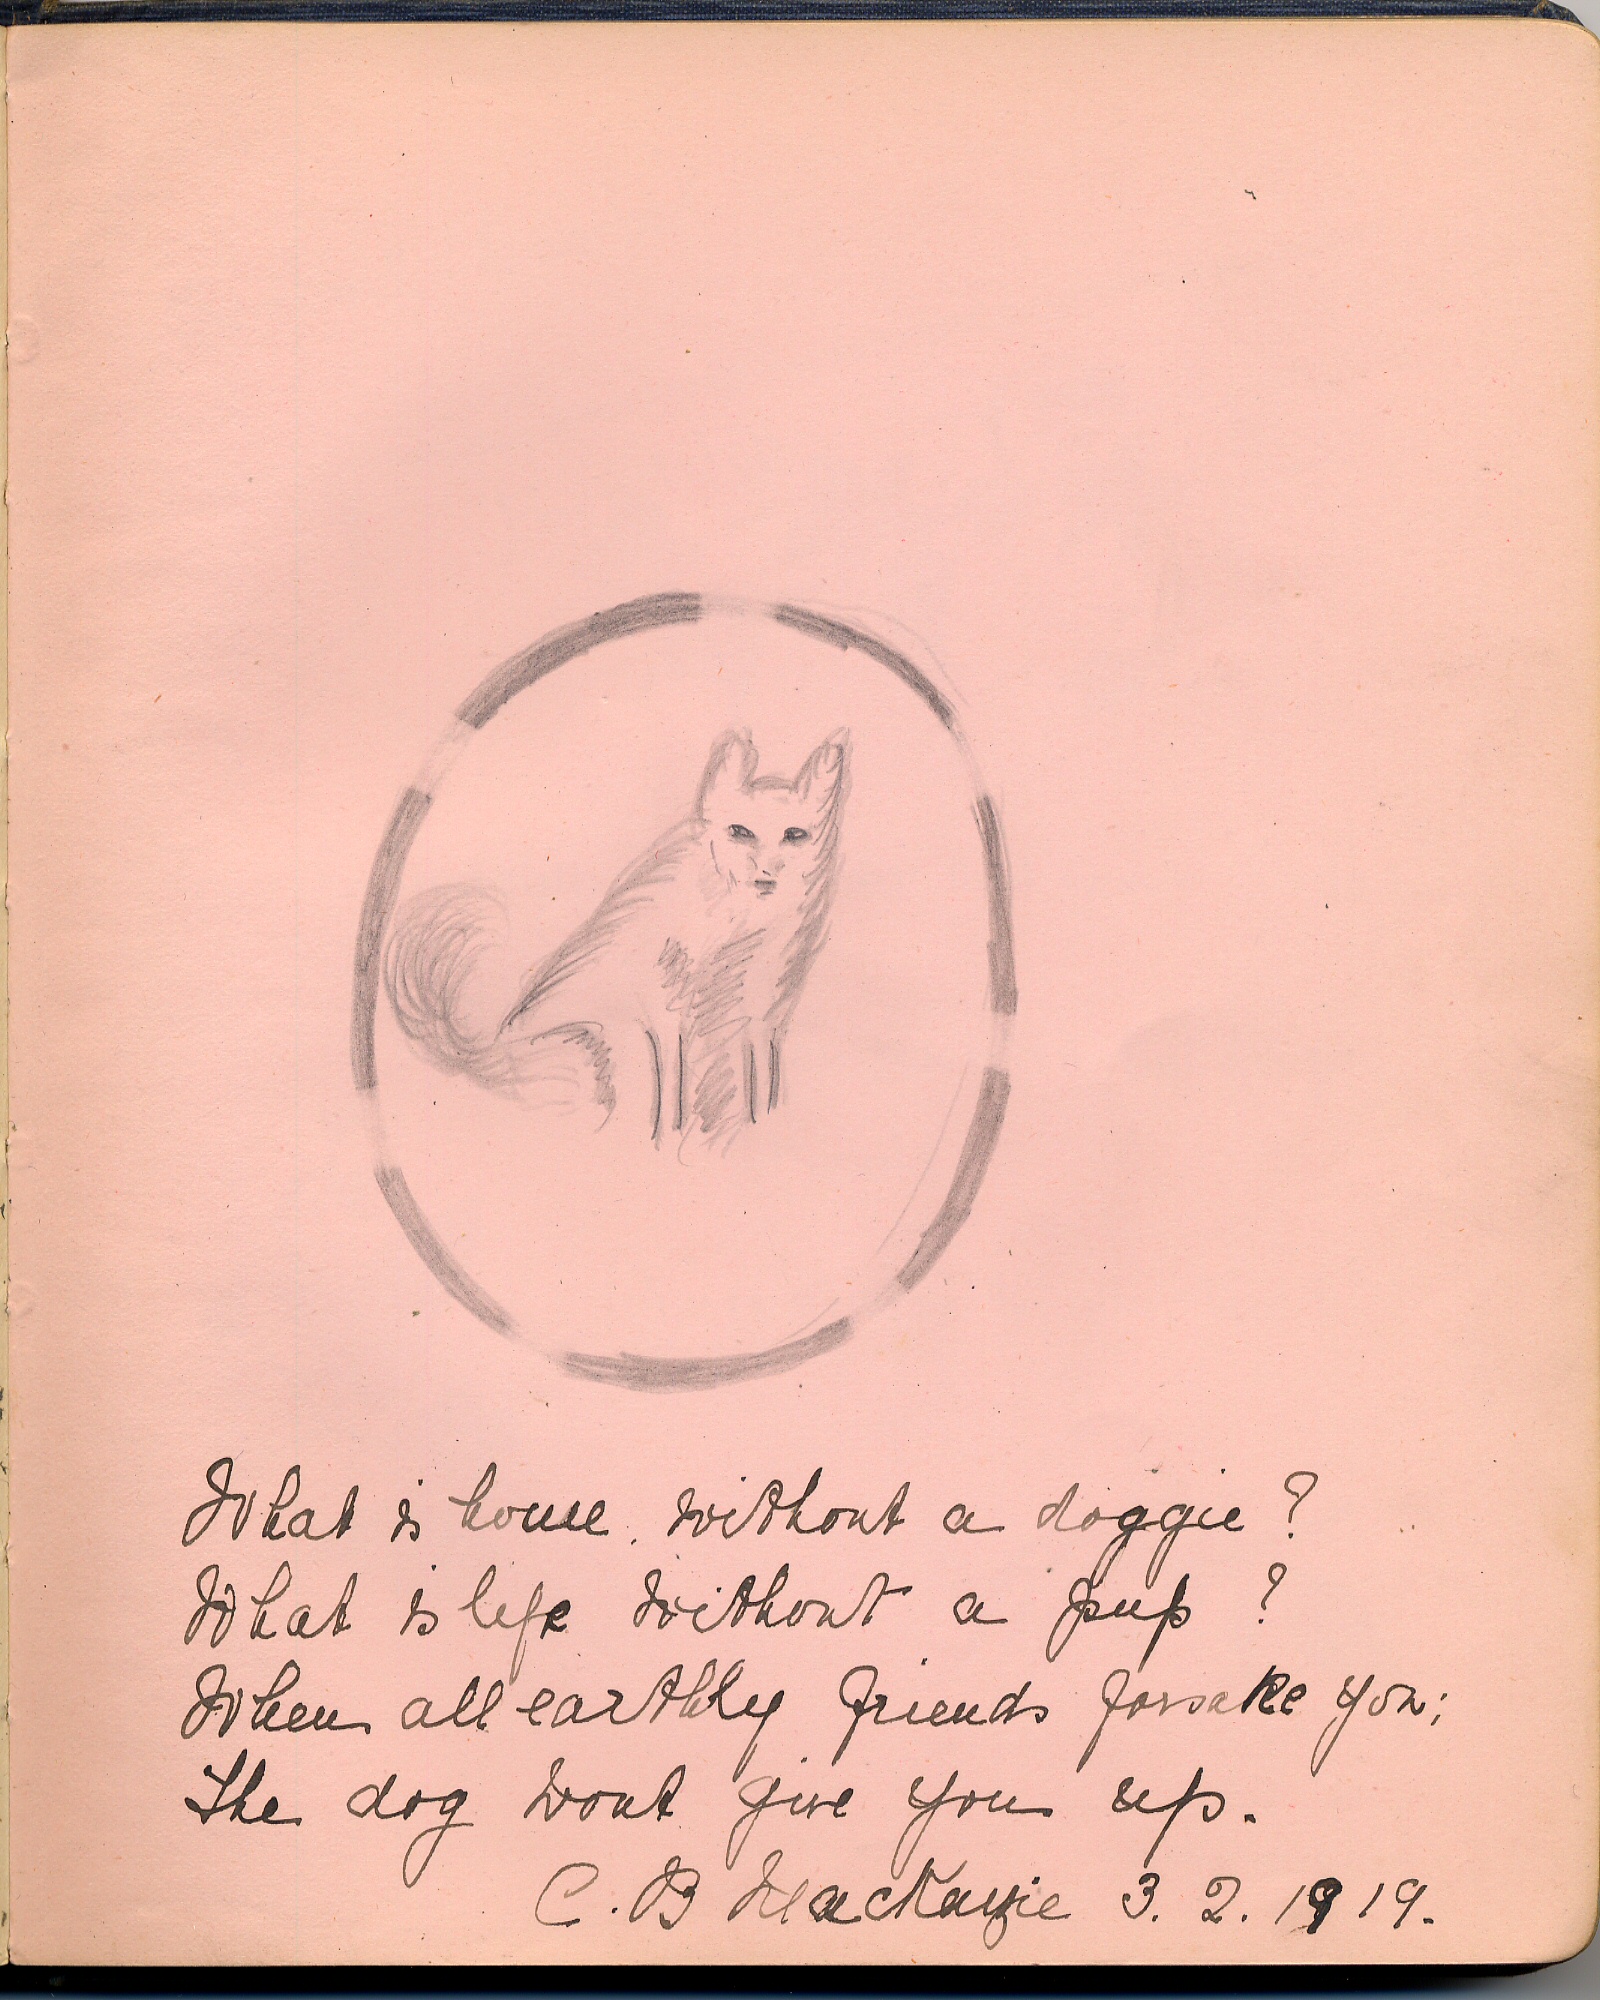 What is home without a doggie?
What is life without a pup?
When all earthly friends forsake you;
The dog wont give you up.
C. B MacKenzie 3. 2. 1919.